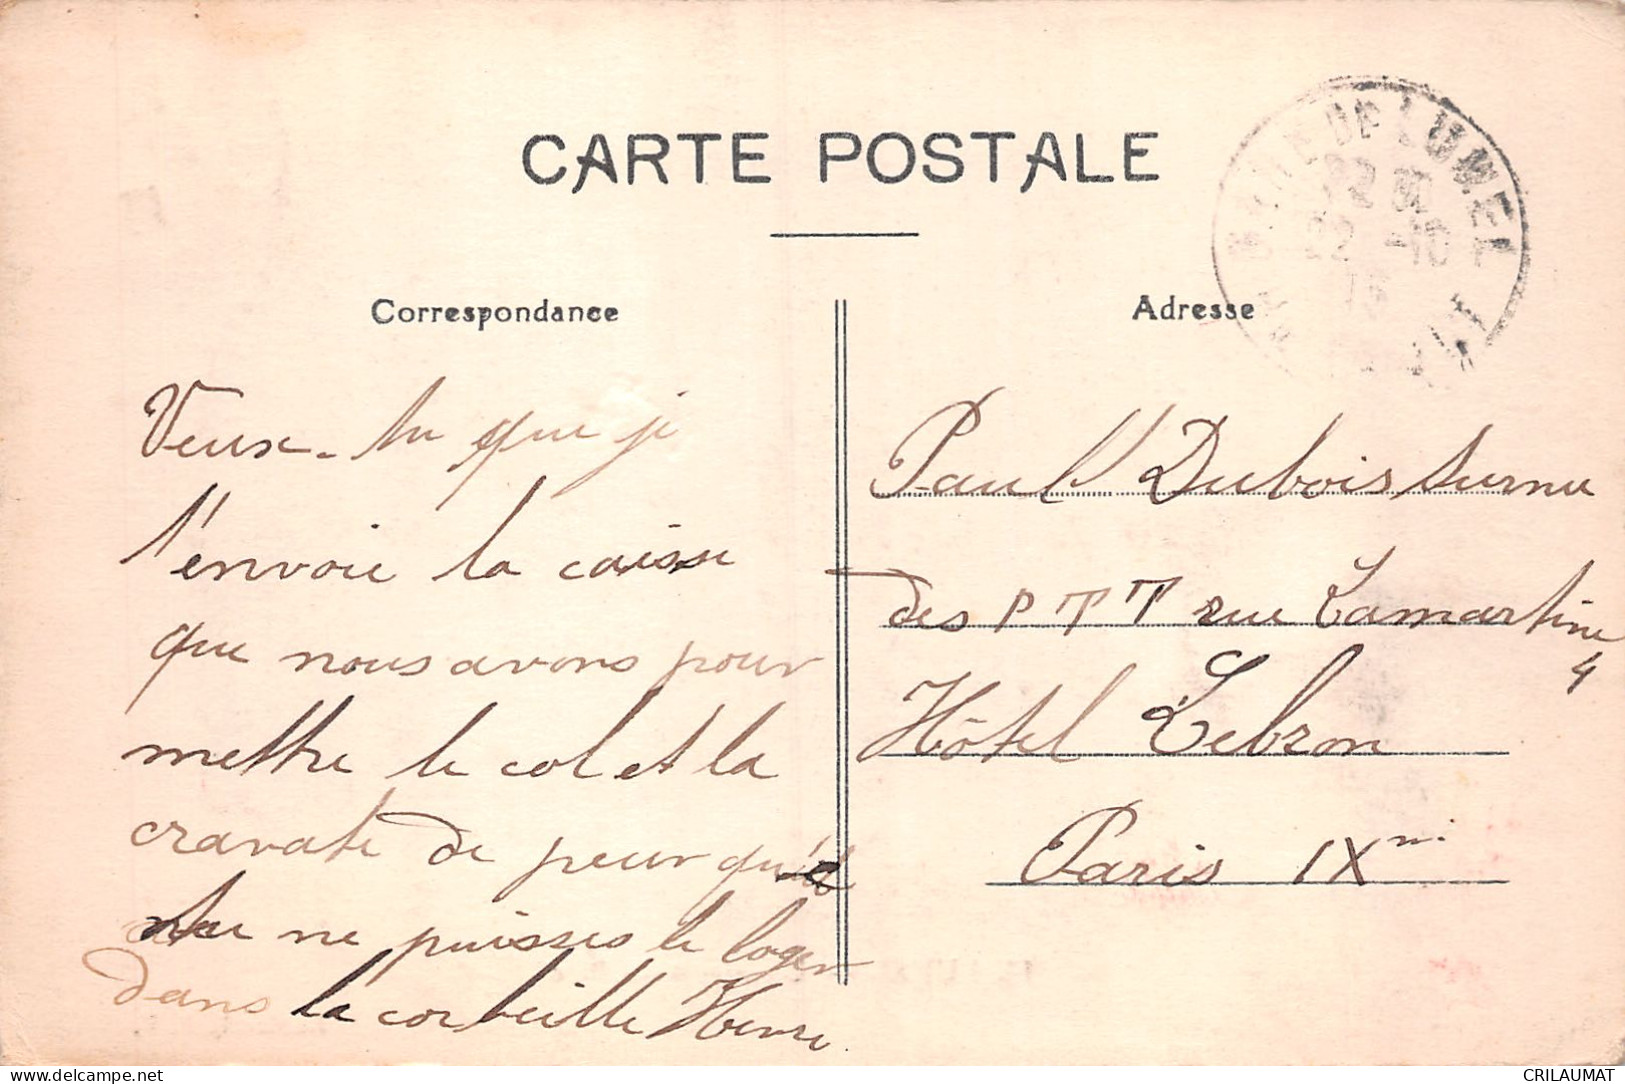 CARTE POSTALE
GARE DE LUNEL
22 -10
Correspondance
Adresse
Veux-tu que je
t'envoie la caisse
que nous avons pour
mettre le col et la
cravate de peur qu'
tu ne puisses le loger
dans la corbeille Henri
Paul Dubois surnu
des PTT rue Lamartine
4
Hôtel Lebron
Paris IXme
delcampe.net
CRILAUMAT